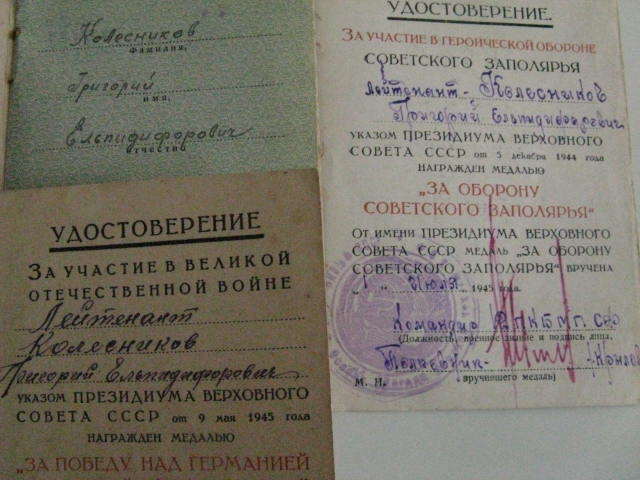 Колесников
Фамилия,
Григорий
имя,
Ельпидифорович
отчество
УДОСТОВЕРЕНИЕ.
ЗА УЧАСТИЕ В ГЕРОИЧЕСКОЙ ОБОРОНЕ
СОВЕТСКОГО ЗАПОЛЯРЬЯ
лейтенант - Колесников
Григорий Ельпидифорович
УКАЗОМ ПРЕЗИДИУМА ВЕРХОВНОГО
СОВЕТА СССР от 5 декабря 1944 года
НАГРАЖДЕН МЕДАЛЬЮ
„ЗА ОБОРОНУ
СОВЕТСКОГО ЗАПОЛЯРЬЯ“
ОТ ИМЕНИ ПРЕЗИДИУМА ВЕРХОВНОГО
СОВЕТА СССР МЕДАЛЬ „ЗА ОБОРОНУ
СОВЕТСКОГО ЗАПОЛЯРЬЯ“ ВРУЧЕНА
„1“ Июля 1945 года.
Командир
(Должность, военное звание и подпись лица,
Полковник-
М. П. вручившего медаль)
УДОСТОВЕРЕНИЕ
ЗА УЧАСТИЕ В ВЕЛИКОЙ
ОТЕЧЕСТВЕННОЙ ВОЙНЕ
Лейтенант
Колесников
Григорий Ельпидифорович
УКАЗОМ ПРЕЗИДИУМА ВЕРХОВНОГО
СОВЕТА СССР от 9 мая 1945 года
НАГРАЖДЕН МЕДАЛЬЮ
„ЗА ПОБЕДУ НАД ГЕРМАНИЕЙ